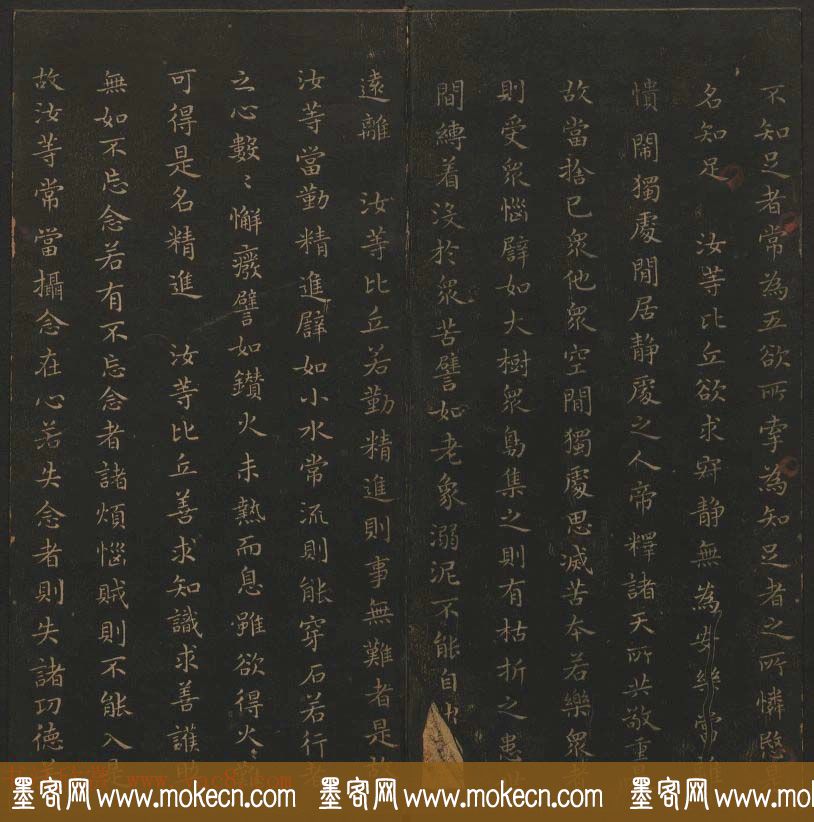 不知足者常為五欲所牽為知足者之所憐愍
名知足 汝等比丘欲求寂静無為安樂常離
憒閙獨處閒居静處之人帝釋諸天所共敬重
故當捨已衆他衆空閒獨處思滅苦本若樂衆者
則受衆惱辟如大樹衆鳥集之則有枯折之患
間縛着沒於衆苦譬如老象溺泥不能自出
遠離 汝等比丘若勤精進則事無難者是故
汝等當勤精進辟如小水常流則能穿石若行者
之心數〻懈癈譬如鑽火未熱而息雖欲得火〻
可得是名精進 汝等比丘善求知識求善護助
無如不忘念若有不忘念者諸煩惱賊則不能入是
故汝等常當攝念在心若失念者則失諸功德
墨客网 www.mokecn.com 墨客网 www.mokecn.com 墨客网 www.mokecn.com